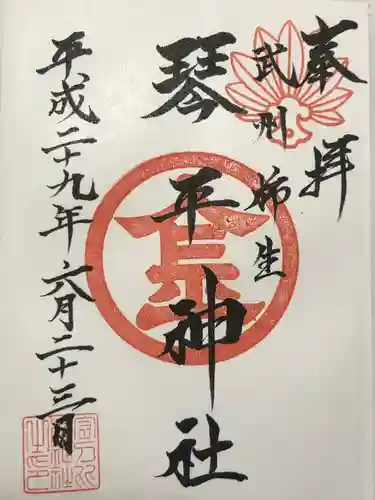 奉拝
武州柿生
琴平神社
平成二十九年六月二十三日